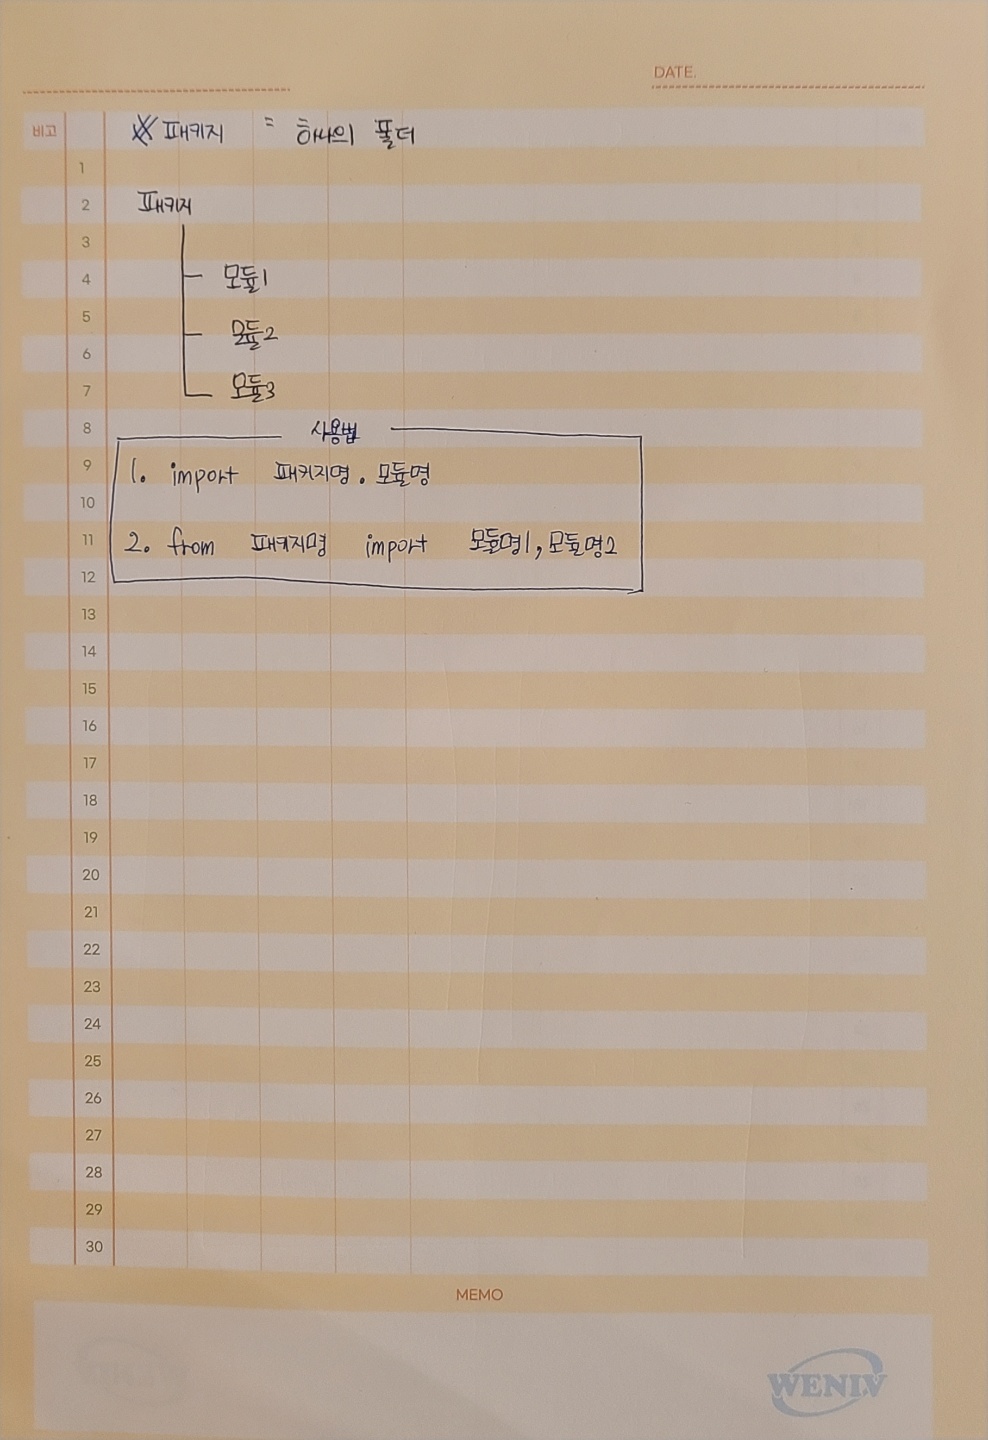 DATE.
비고 ※ 패키지 = 하나의 폴더
1
2 패키지
3
4 모듈1
5
모듈2
6
7 모듈3
8 사용법
9 1. import 패키지명 . 모듈명
10
11 2. from 패키지명 import 모듈명1, 모듈명2
12
13
14
15
16
17
18
19
20
21
22
23
24
25
26
27
28
29
30
MEMO
WENIV